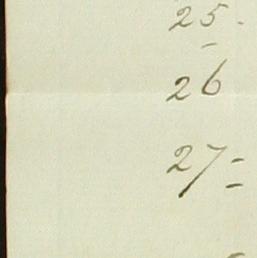 25-
26
27=